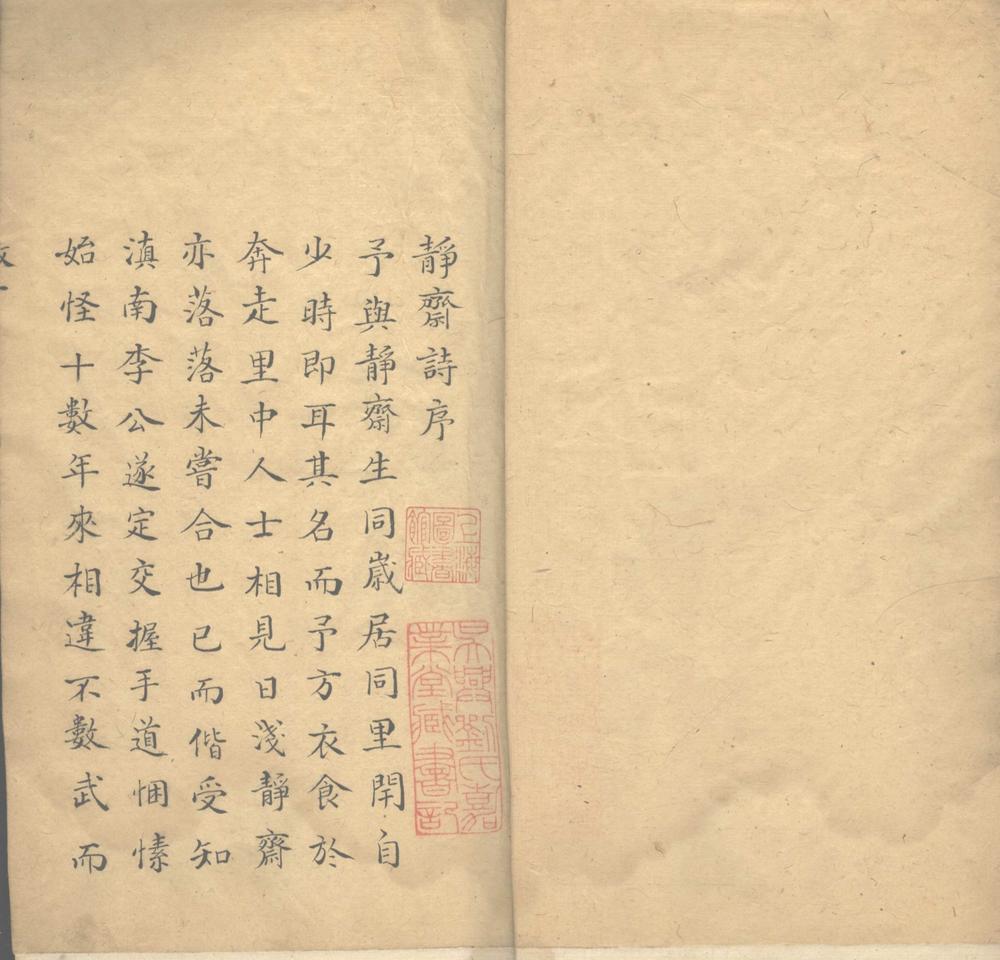 靜齋詩序
予與靜齋生同歲居同里閈自
少時即耳其名而予方衣食於
奔走里中人士相見日淺靜齋
亦落落未嘗合也已而偕受知
滇南李公遂定交握手道悃愫
始怪十數年來相違不數武而
上海圖書館藏
吳興劉氏嘉業堂藏書記